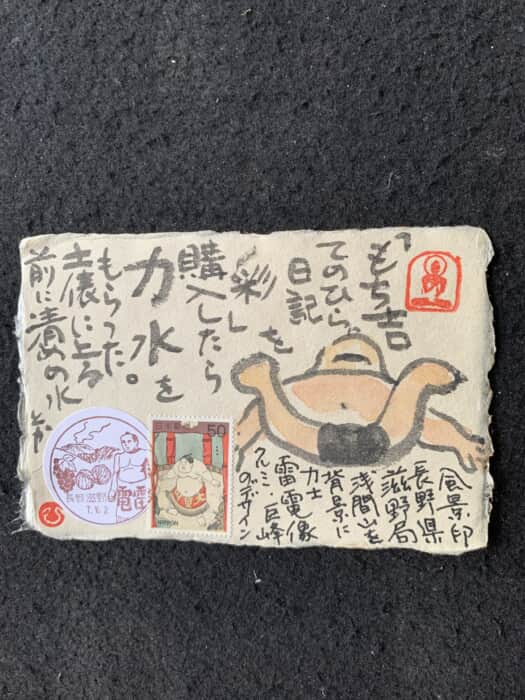 「もち吉
てのひら
日記
彩」を
購入したら
力水を
もらった。
土俵に上る
前に清めの水とか
風景印
長野県
滋野局
浅間山を
背景に
力士
雷電像
クルミ・巨峰
のデザイン
日本郵便
50
NIPPON
長野滋野
7.6.2
雷電